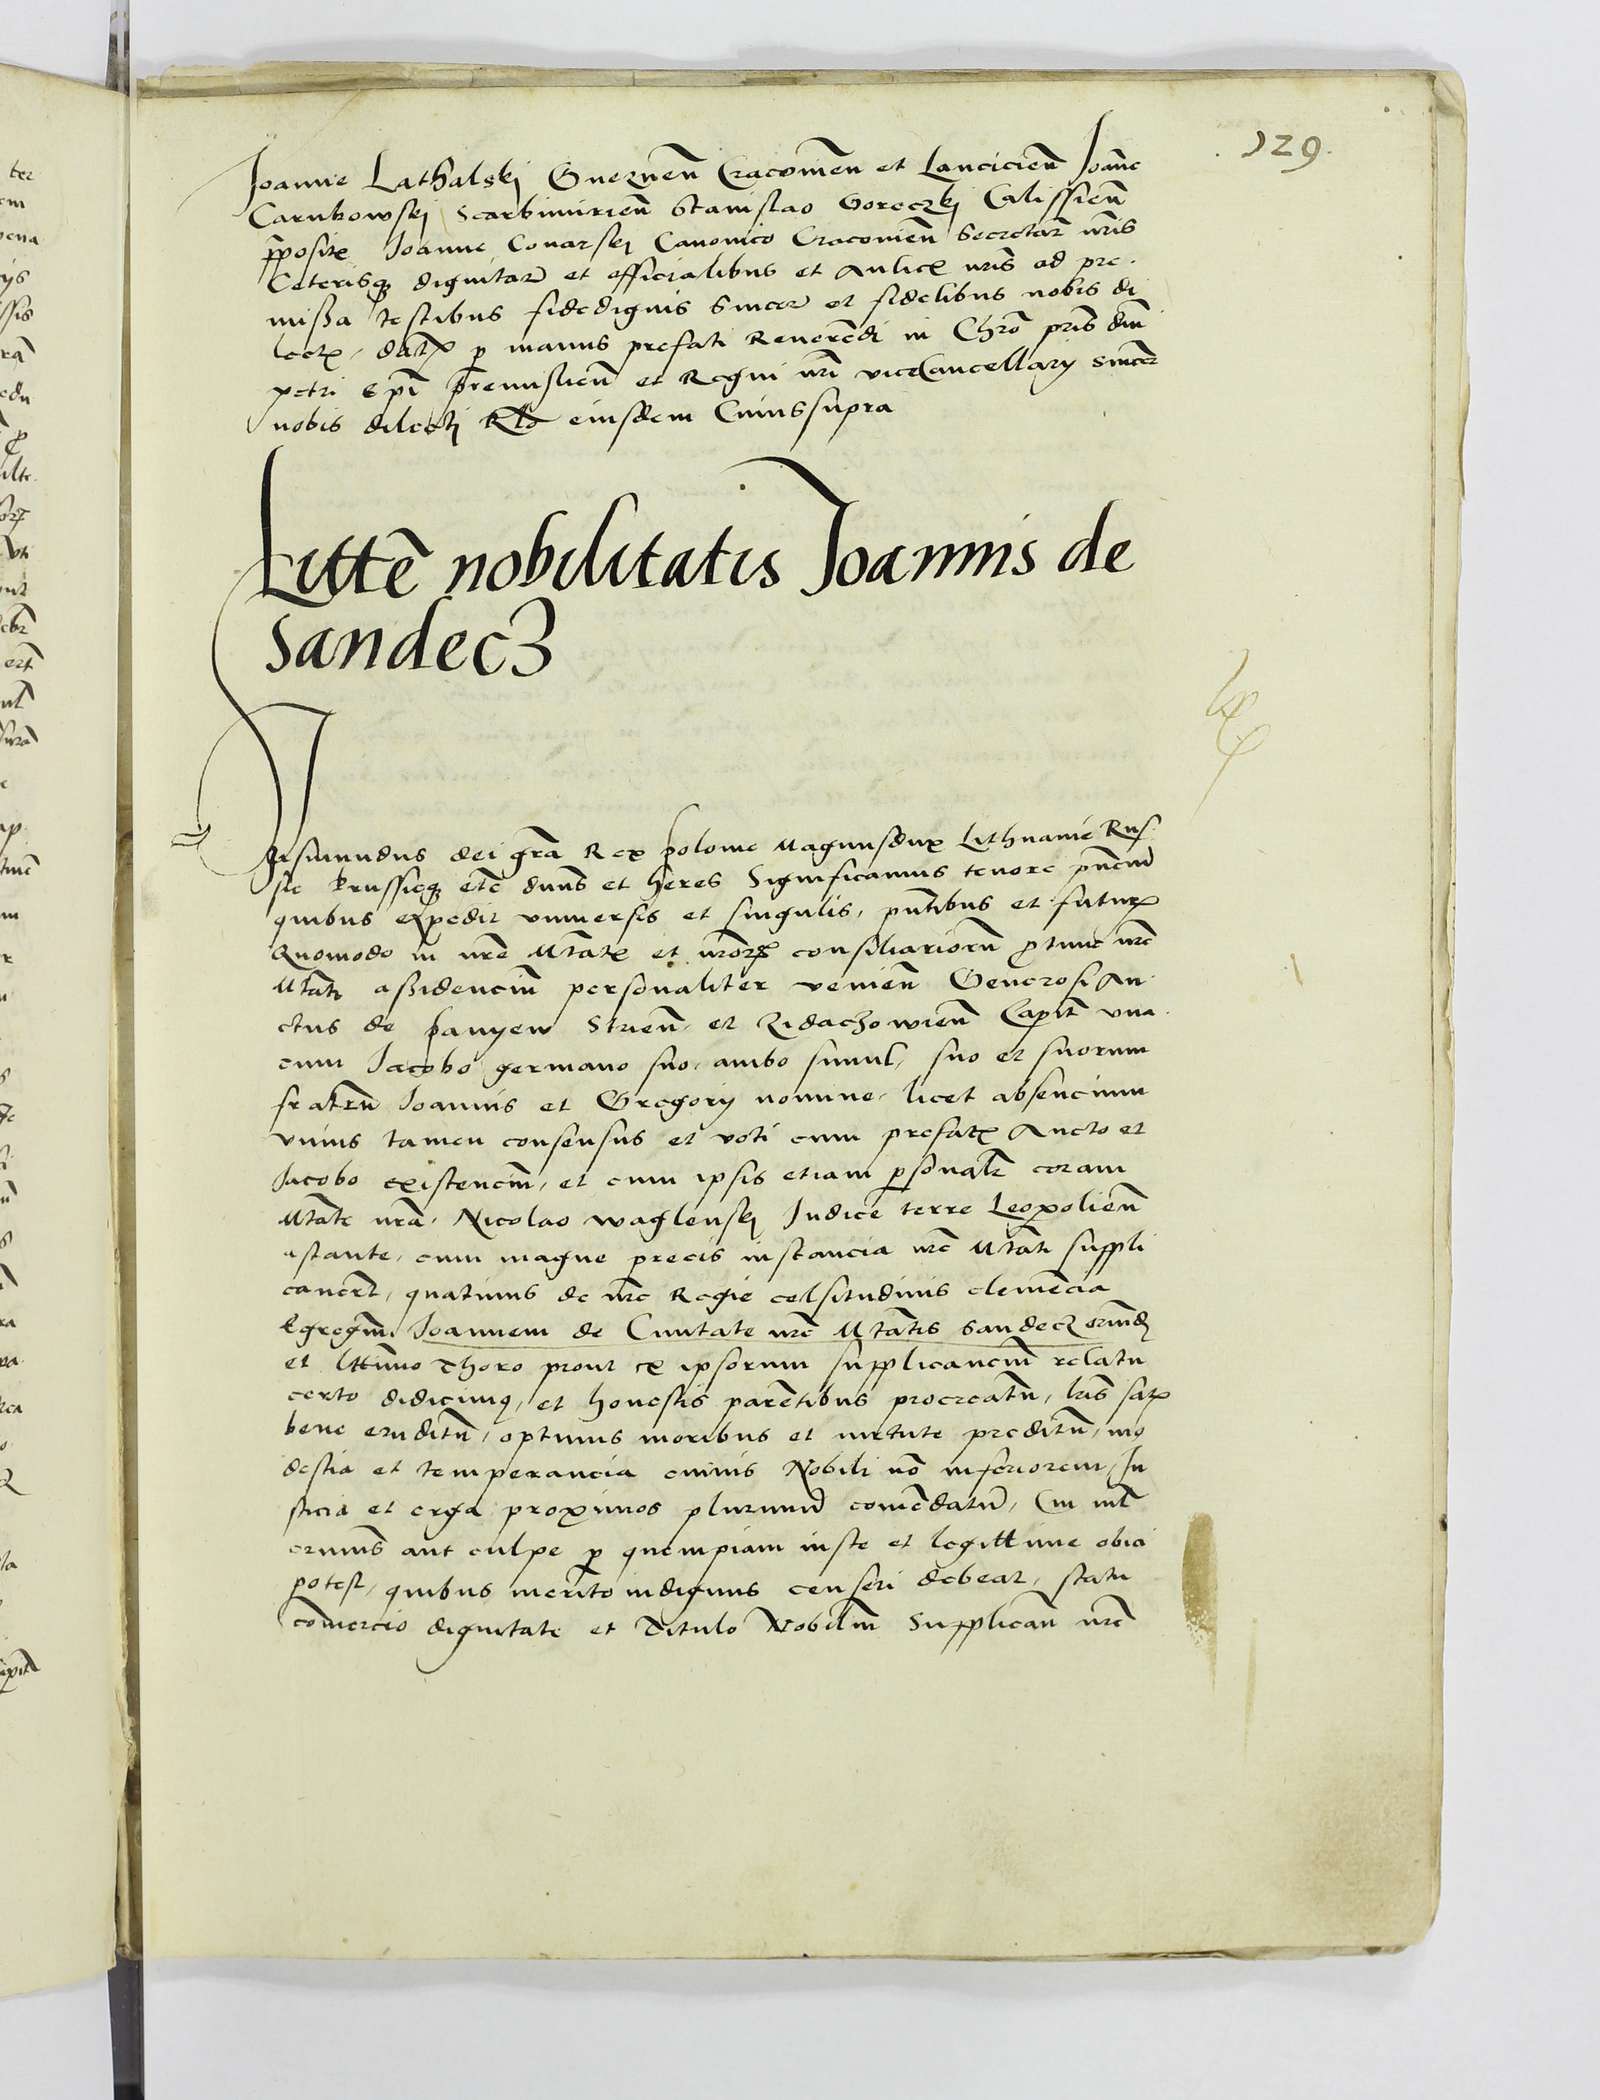 129.
Joanne Lathalskj Gneznen̄ Cracovien̄ et Lancicien̄ Joan̄e
Carnkowskj Scarbimirien̄ Stanislao Goreczkj Calissien̄
p̄positꝭ Joanne Conarskj Canonico Cracovien̄ Secretar̄ nr̄is
Ceterisqꝫ dignitar̄ et officialibus et Aulicꝭ nr̄is ad pre
missa testibus fidedignis Sincer̄ et fidelibus nobis di
lectꝭ, datꝭ ꝑ manus prefati Reverēdi in Chr̄o pr̄is dn̄i
petri ep̄i premislien̄ et Regni nr̄i viceCancellarij Sincer̄
nobis dilectj Rlo eiusdem Cuiussupra
Litte᷑ nobilitatis Joannis de
Sandecꝫ
Sigismundus dei gr̄a Rex polonie Magnusdux Lithuanie Rus
sie prussieqꝫ etc̄ dn̄us et heres Significamus tenore pn̄ciu᷑
quibus expedit universis et singulis, pn̄tibus et futurꝭ
Quomodo in nr̄e Mtātꝭ et nr̄orꝝ consiliariorū ꝓtunc nr̄e
Mtāti assidenciū personaliter venien̄ Generosi An
ctus de panyew Strien̄ et Zidaczowien̄ Capit̄ vna
cum Jacobo germano suo, ambo simul, suo et suorum
fratrū Joannis et Gregorij nomine, licet absencium
vnius tamen consensus et voti cum prefatꝭ Ancto et
Jacobo existenciū, et cum ipsis etiam ꝑsonalr̄ coram
Mtāte nr̄a, Nicolao waglenskj Judice terre Leopolien̄
astante, cum magne precis instancia nr̄e Mtāti suppli
caver̄t, quatinus de nr̄e Regie celsitudinis clemēcia
Egregiū Joannem de Civitate nr̄e Mtātis Sandecz oriūdꝫ
et l̄ttimo Thoro prout ex ipsorum supplicanciū relatu
certo didicimꝰ, et honestis parētibus procreatū, lr̄is satꝭ
bene eruditū, optimis moribus et virtute preditū, mo
destia et temperancia cuivis Nobili nō inferiorem, Ju
sticia et erga proximos plurimū comēdatū, Cui nil̄
criminis aut culpe ꝑ quempiam iuste et legittime obici
potest, quibus merito indignus censeri debeat, statu
comercio dignitate et Titulo Nobiliū Supplican̄ nr̄e